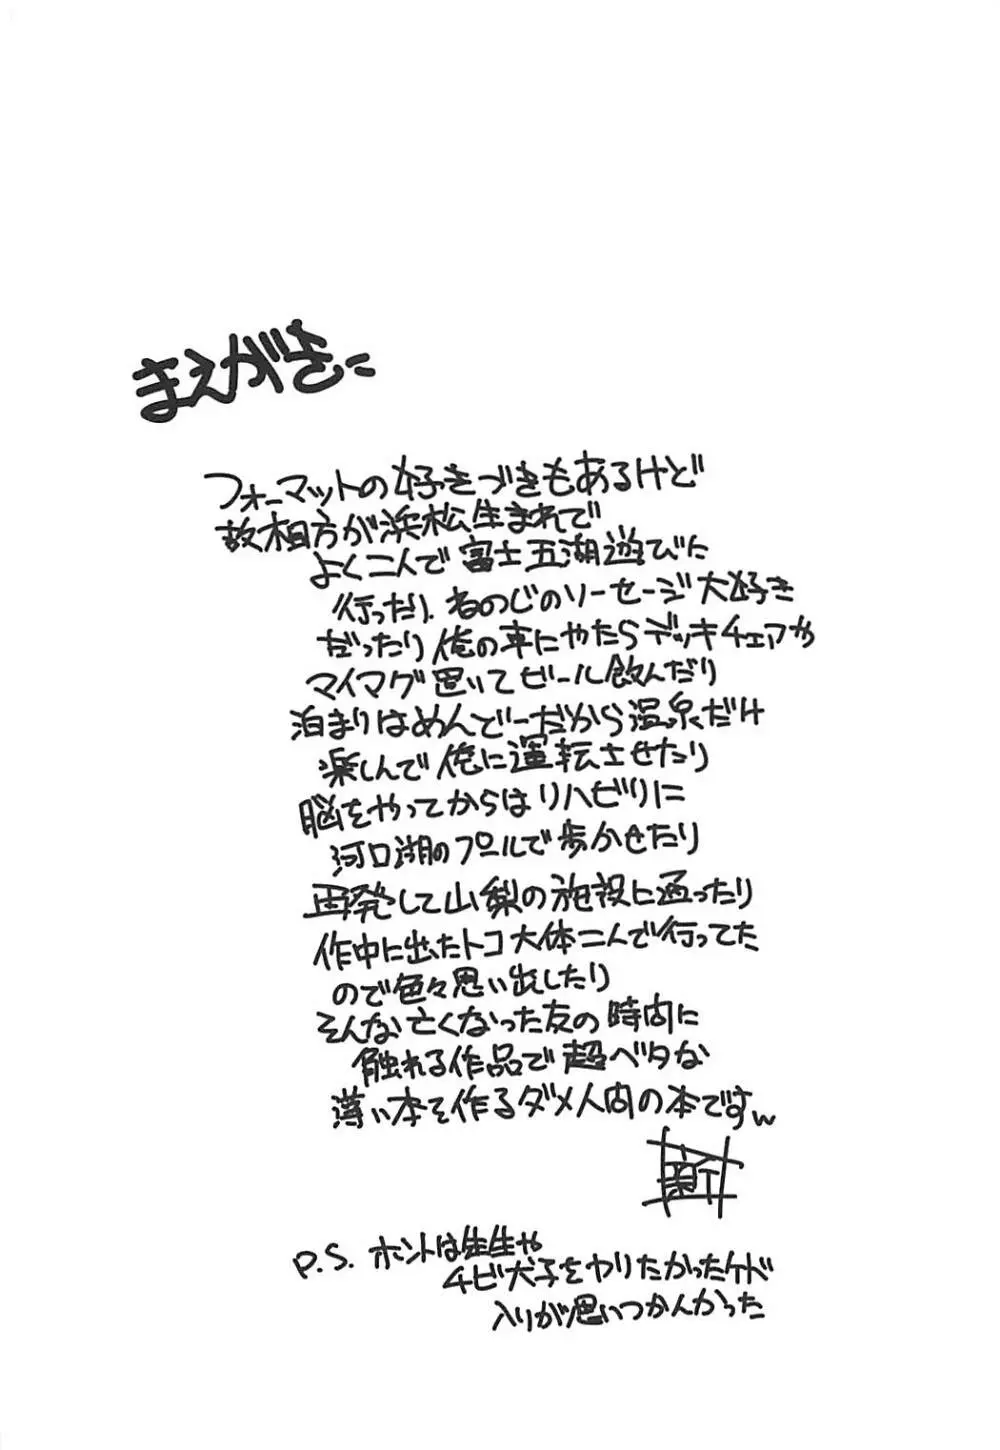 まえがきに
フォーマットの好きづきもあるけど
故相方が浜松生まれで
よく二人で富士五湖遊びに
行ったり、のソーセージ大好き
だったり俺の車にやたらデッキチェアか
マイマグ置いてビール飲んだり
泊まりはめんでーだから温泉だけ
楽しんで俺に運転させたり
脳をやってからはリハビリに
河口湖のプールで歩かせたり
再発して山梨の施設に通ったり
作中に出たトコ大体二人で行ってた
ので色々思い出したり
そんな亡くなった友の時間に
触れる作品で超ベタな
薄い本を作るダメ人間の本ですw
P.S. ホントは先生や
チビ犬子をやりたかったケド
入りが思いつかんかった